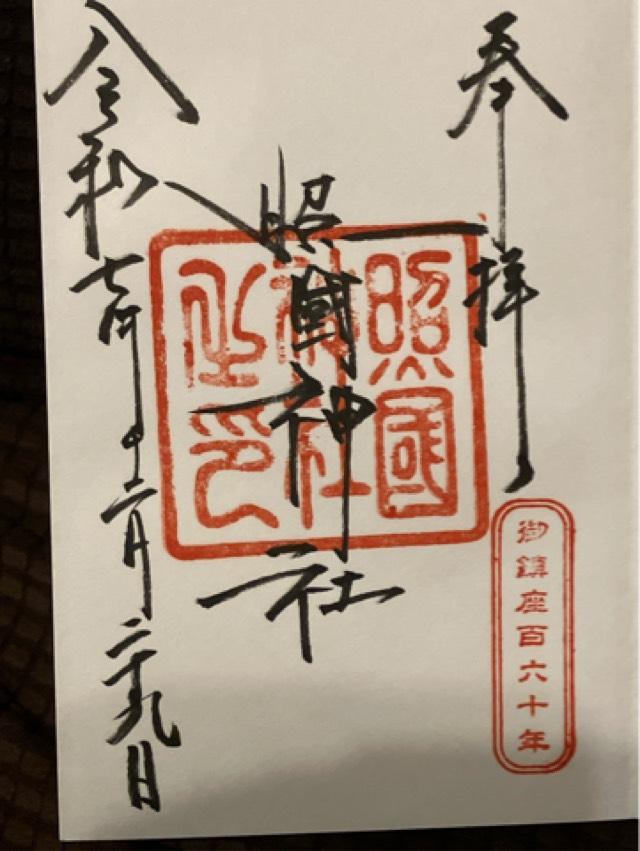 奉拝
御鎮座百六十年
照國神社
照國
神社
之印
令和七年十二月二十九日